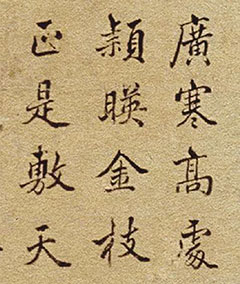 廣寒高處
穎暎金枝
正是敷天